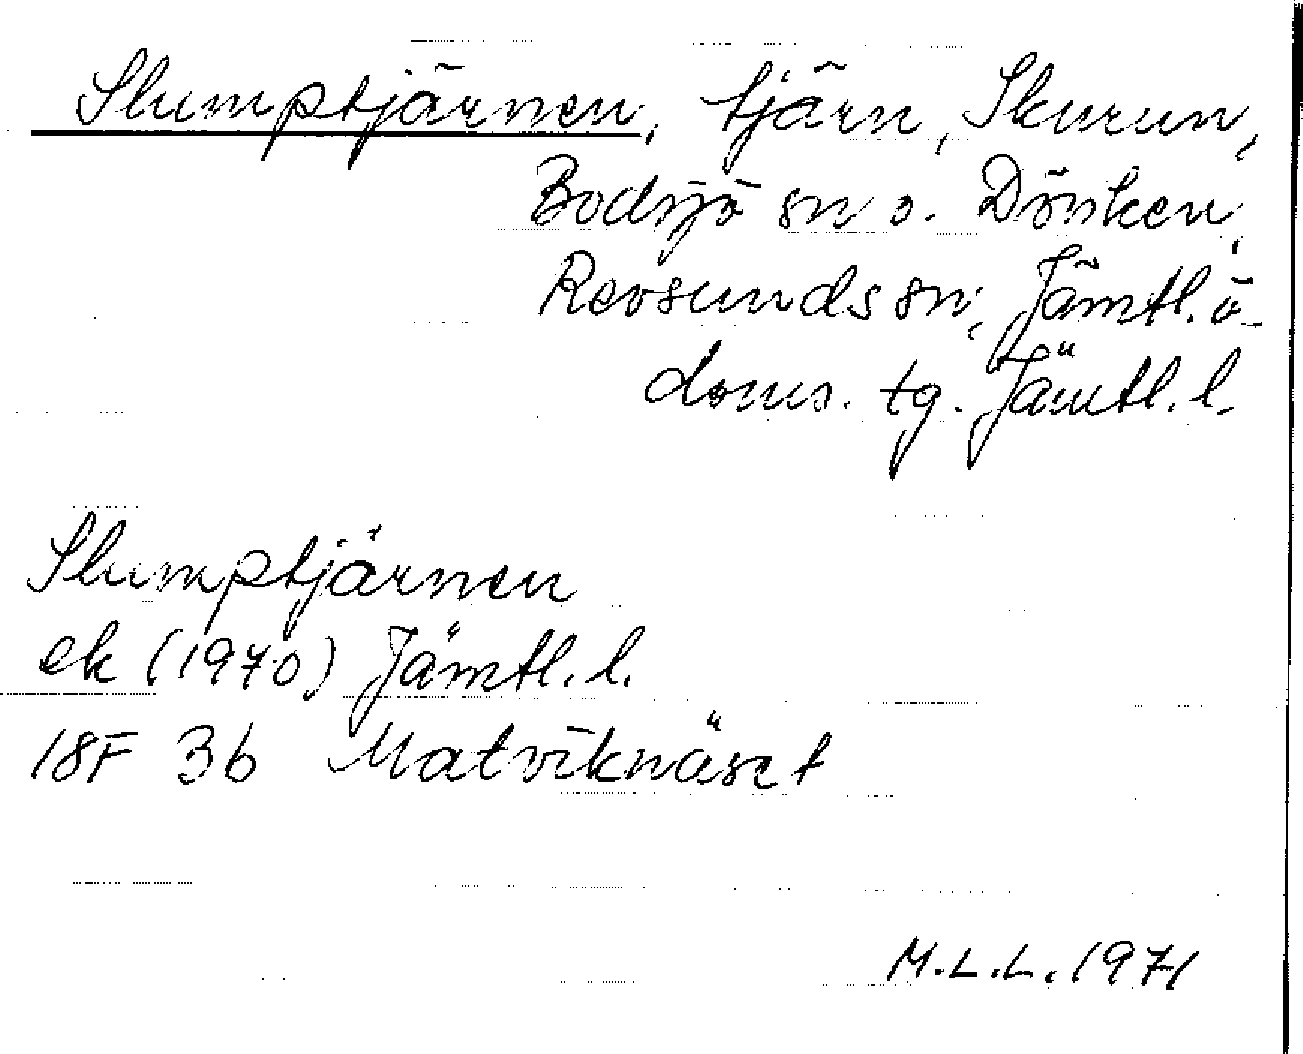 Slumptjärnen, tjärn, Skurun,
Bodsjö sn o. Döviken,
Revsunds sn, Jämtl. ö.
doms. tg. Jämtl. l.
Slumptjärnen
ek (1970) Jämtl. l.
18F 3b Matviknäset
M.L.L. 1971